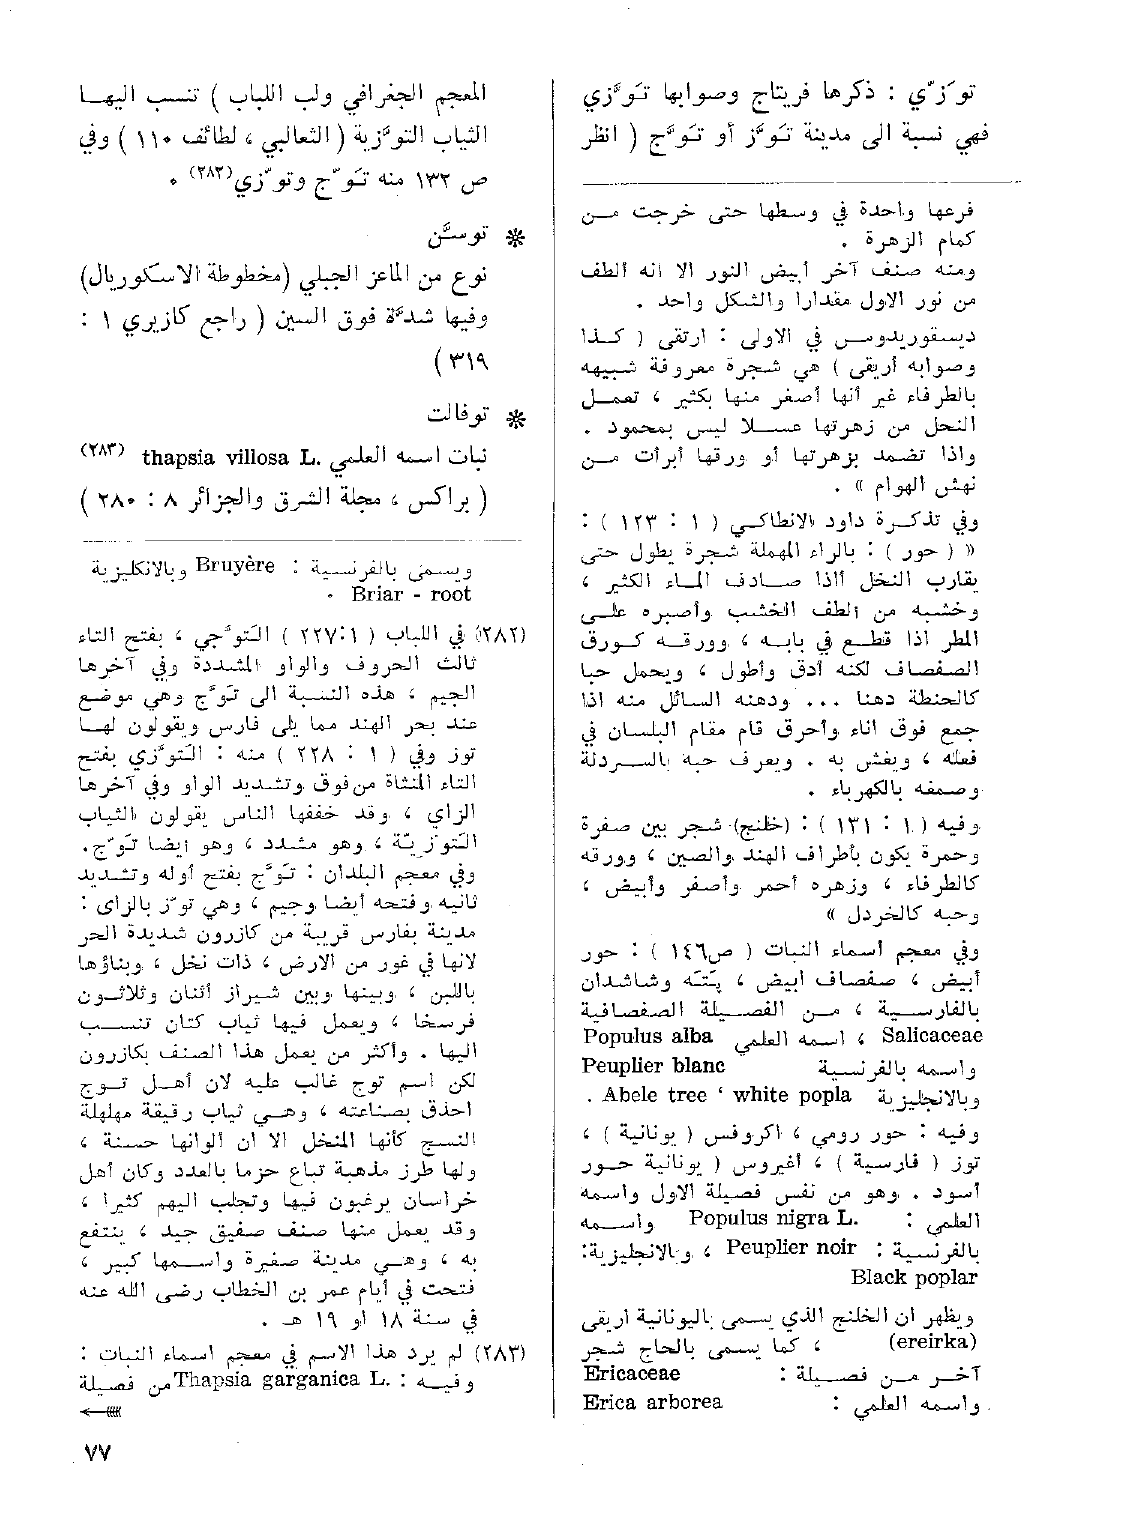 توَزّي : ذكرها فريتاج وصوابها تَوَّزي
فهي نسبة الى مدينة تَوَّز أو تَوَّج ( انظر
المعجم الجغرافي ولب اللباب ) تنسب اليهـا
الثياب التوَّزية ( الثعالبي ، لطائف ١١٠ ) وفي
ص ١٣٢ منه تَوّج وتوّزي(٢٨٢) .
❋ توسَّن
نوع من الماعز الجبلي (مخطوطة الاسكوريال)
وفيها شدَّة فوق السين ( راجع كازيري ١ :
٣١٩ )
❋ توفالت
نبات اسمه العلمي thapsia villosa L. (٢٨٣)
( براكس ، مجلة الشرق والجزائر ٨ : ٢٨٠ )
فرعها واحدة في وسطها حتى خرجت مـن
كمام الزهرة .
ومنه صنف آخر أبيض النور الا انه ألطف
من نور الاول مقدارا والشكل واحد .
ديسقوريدوس في الاولى : ارتقى ( كـذا
وصوابه أريقى ) هي شجرة معروفة شبيهه
بالطرفاء غير أنها أصغر منها بكثير ، تعمـل
النحل من زهرتها عسـلا ليس بمحمود .
واذا تضمد بزهرتها أو ورقها أبرأت مـن
نهش الهوام » .
وفي تذكـرة داود الانطاكـي ( ١ : ١٢٣ ) :
« ( حور ) : بالراء المهملة شجرة يطول حتى
يقارب النخل أاذا صـادف المـاء الكثير ،
وخشبه من الطف الخشب وأصبره علـى
المطر اذا قطـع في بابـه ، وورقـه كـورق
الصفصاف لكنه أدق وأطول ، ويحمل حبا
كالحنطة دهنا ... ودهنه السـائل منه اذا
جمع فوق اناء وأحرق قام مقام البلسان في
فعله ، ويغش به . ويعرف حبه بالـردلة
وصمغه بالكهرباء .
وفيه ( ١ : ١٣١ ) : (خلنج) شجر بين صفرة
وحمرة يكون بأطراف الهند والصين ، وورقه
كالطرفاء ، وزهره أحمر وأصفر وأبيض ،
وحبه كالخردل »
وفي معجم أسماء النبات ( ص١٤٦ ) : حور
أبيض ، صفصاف ابيض ، پَتَنَه وشاشدان
بالفارسـية ، مـن الفصـيلة الصفصـافية
Salicaceae ، اسمه العلمي Populus alba
واسمه بالفرنسـية Peuplier blanc
وبالانجليزية Abele tree ‘ white popla .
وفيه : حور رومي ، اكروفس ( يونانية ) ،
توز ( فارسية ) ، أغيروس ( يونانية حـور
أسود . وهو من نفس فصيلة الاول واسمه
العلمي : Populus nigra L. واسـمه
بالفرنسـية : Peuplier noir ، وبالانجليزية:
Black poplar
ويظهر ان الخلنج الذي يسمى باليونانية اريقى
(ereirka) ، كما يسمى بالحاج شجر
آخـر مـن فصـيلة : Ericaceae
واسمه العلمي : Erica arborea
ويسمى بالفرنسـية : Bruyère وبالانكليزية
Briar - root .
(٢٨٢) في اللباب ( ٢٢٧:١ ) التَوَّجي ، بفتح التاء
ثالث الحروف والواو المشددة وفي آخرها
الجيم ، هذه النسبة الى تَوَّج وهي موضـع
عند بحر الهند مما يلي فارس ويقولون لهـا
توز وفي ( ١ : ٢٢٨ ) منه : التَوَّزي بفتح
التاء المثناة من فوق وتشديد الواو وفي آخرها
الزاي ، وقد خففها الناس يقولون الثياب
التَوزيّة ، وهو مشدد ، وهو ايضا تَوّج.
وفي معجم البلدان : تَوَّج بفتح أوله وتشديد
ثانيه وفتحه أيضا وجيم ، وهي توّز بالزاى :
مدينة بفارس قريبة من كازرون شديدة الحر
لانها في غور من الارض ، ذات نخل ، وبناؤها
باللبن ، وبينها وبين شيراز أثنان وثلاثـون
فرسخا ، ويعمل فيها ثياب كتان تنسـب
اليها . وأكثر من يعمل هذا الصنف بكازرون
لكن اسم توج غالب عليه لان أهـل تـوج
احذق بصناعته ، وهـي ثياب رقيقة مهلهلة
النسج كأنها المنخل الا ان ألوانها حسنة ،
ولها طرز مذهبة تباع حزما بالعدد وكان أهل
خراسان يرغبون فيها وتجلب اليهم كثيرا ،
وقد يعمل منها صنف صفيق جيد ، ينتفع
به ، وهـي مدينة صغيرة واسـمها كبير ،
فتحت في أيام عمر بن الخطاب رضى الله عنه
في سنة ١٨ أو ١٩ هـ .
(٢٨٣) لم يرد هذا الاسم في معجم اسماء النبات :
وفيـه : Thapsia garganica L. من فصيلة
٧٧